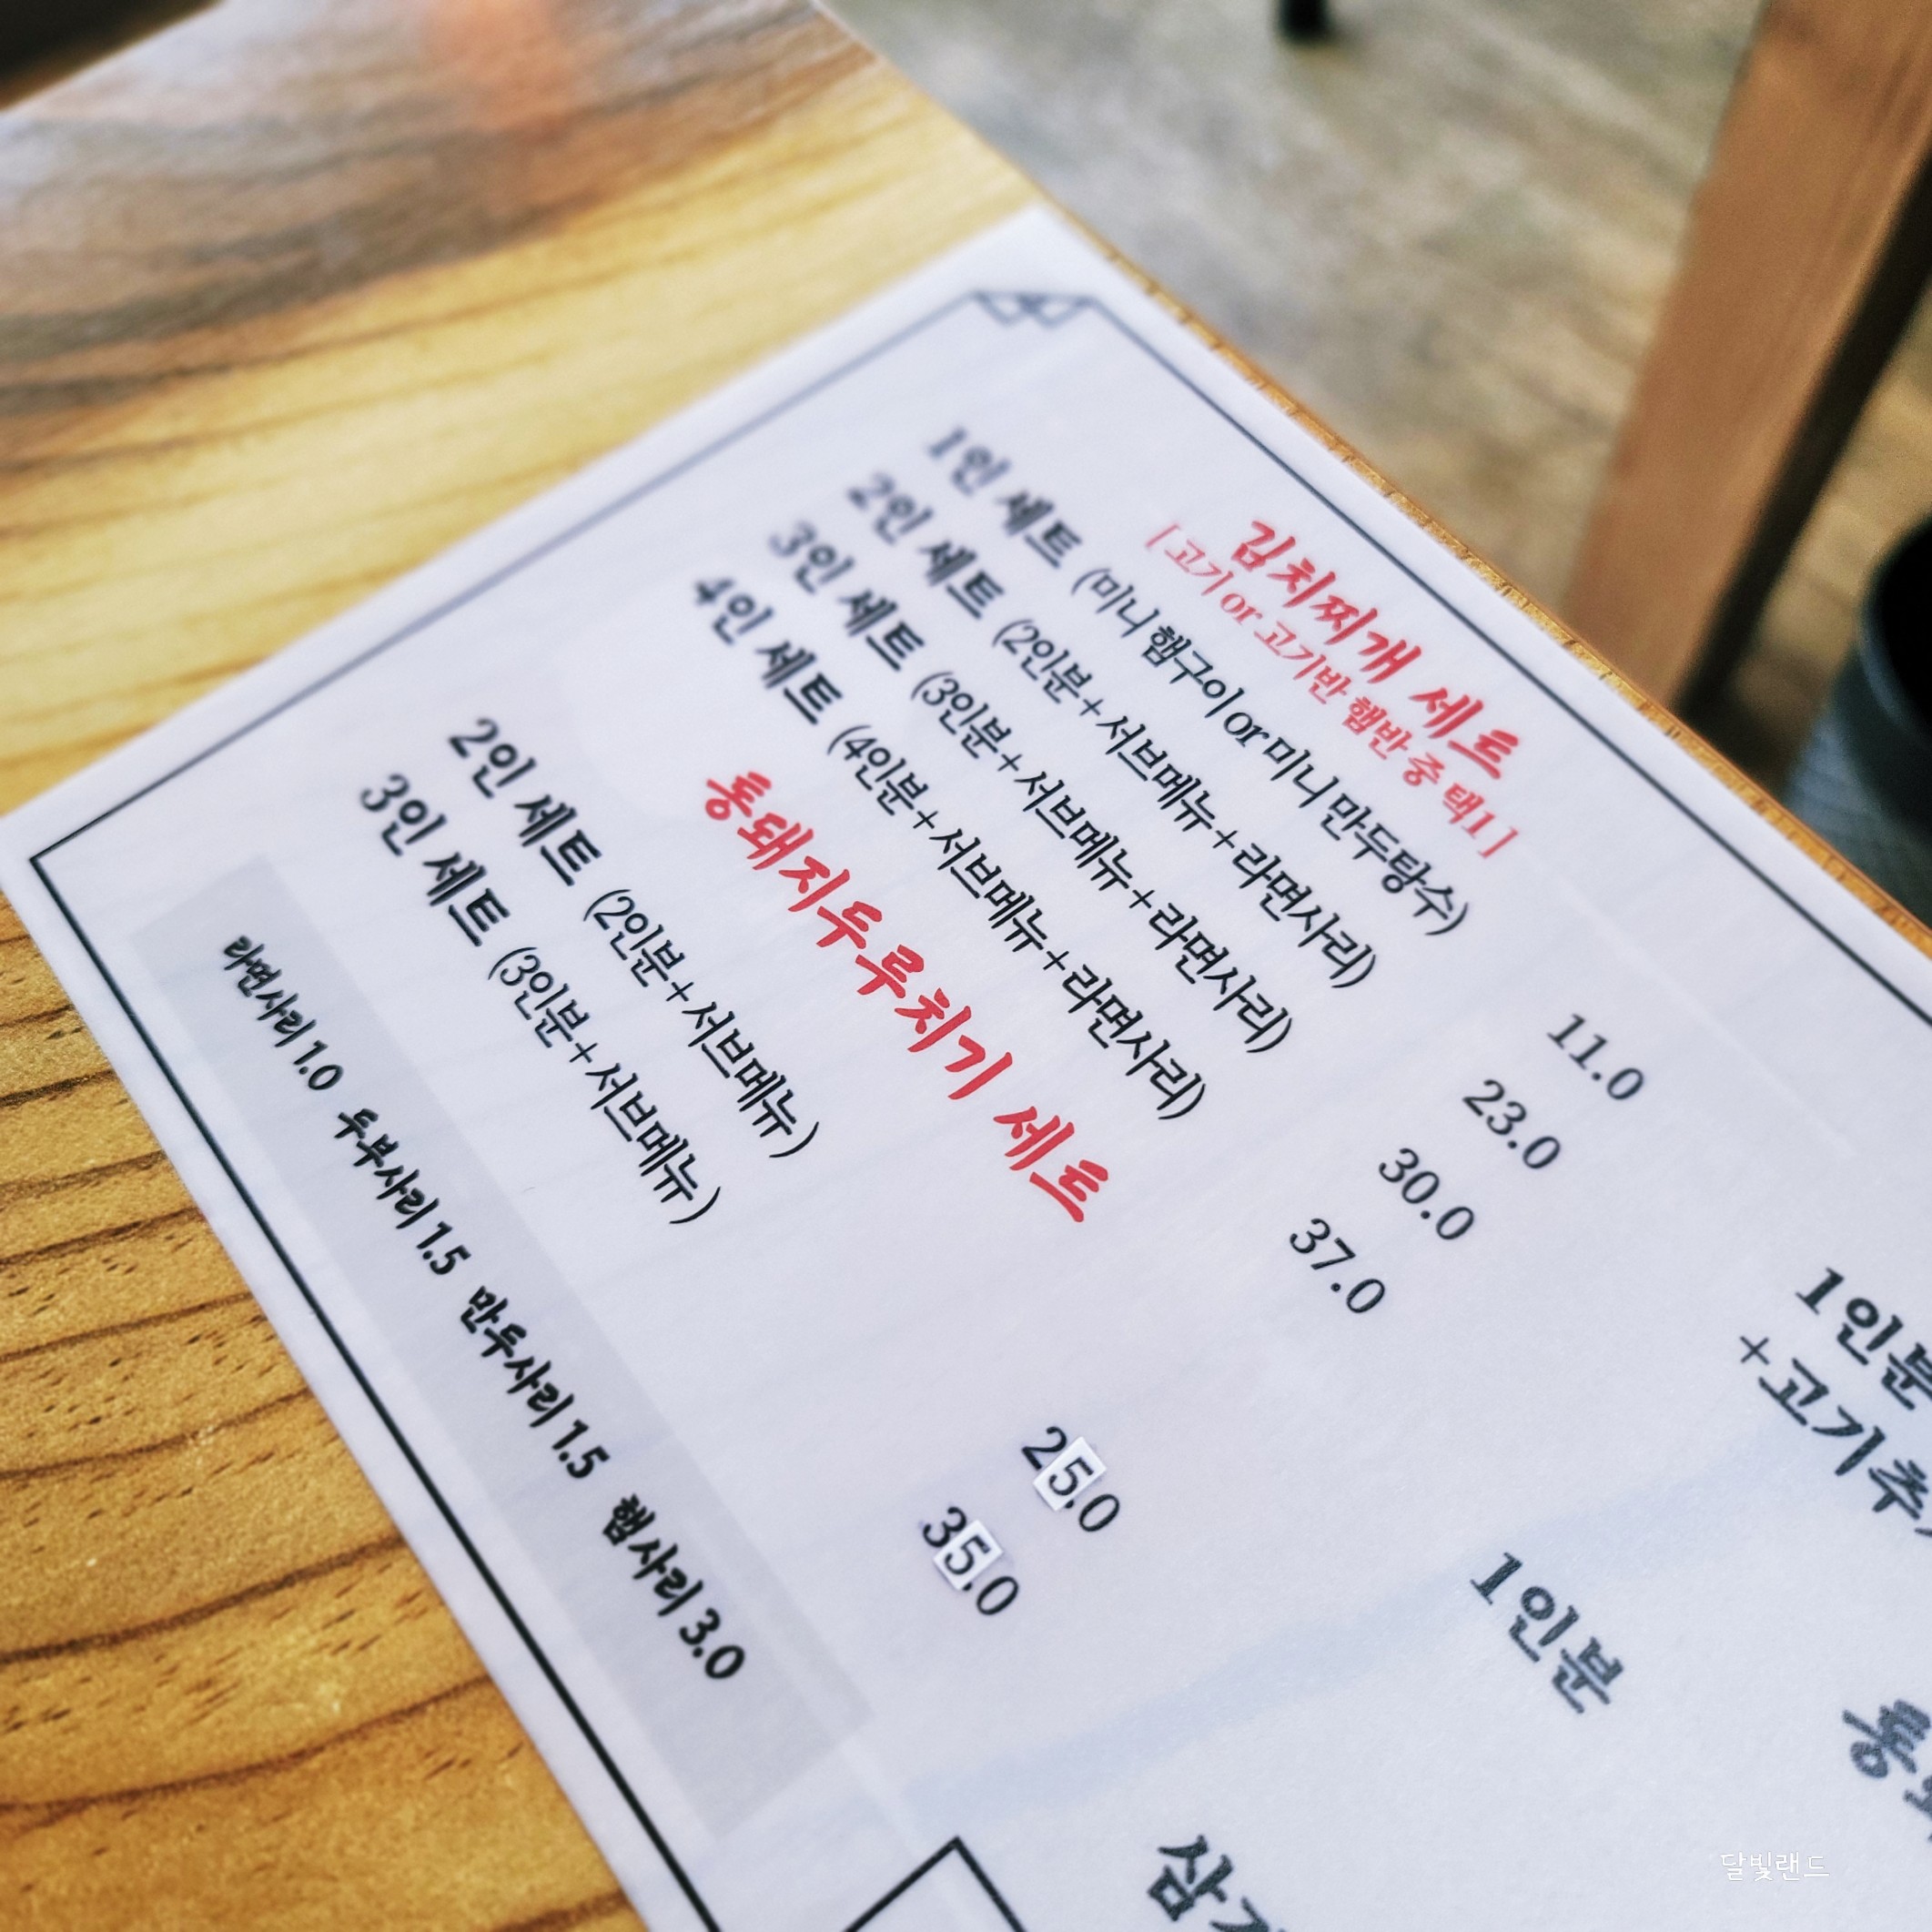 김치찌개 세트
[고기 or 고기반 햄반 중 택1]
1인 세트 (미니 햄구이 or 미니 만두탕수) 11.0
2인 세트 (2인분+서브메뉴+라면사리) 23.0
3인 세트 (3인분+서브메뉴+라면사리) 30.0
4인 세트 (4인분+서브메뉴+라면사리) 37.0
통돼지두루치기 세트
2인 세트 (2인분+서브메뉴) 25.0
3인 세트 (3인분+서브메뉴) 35.0
라면사리 1.0 두부사리 1.5 만두사리 1.5 햄사리 3.0
1인분
+고기추
1인분
달빛랜드